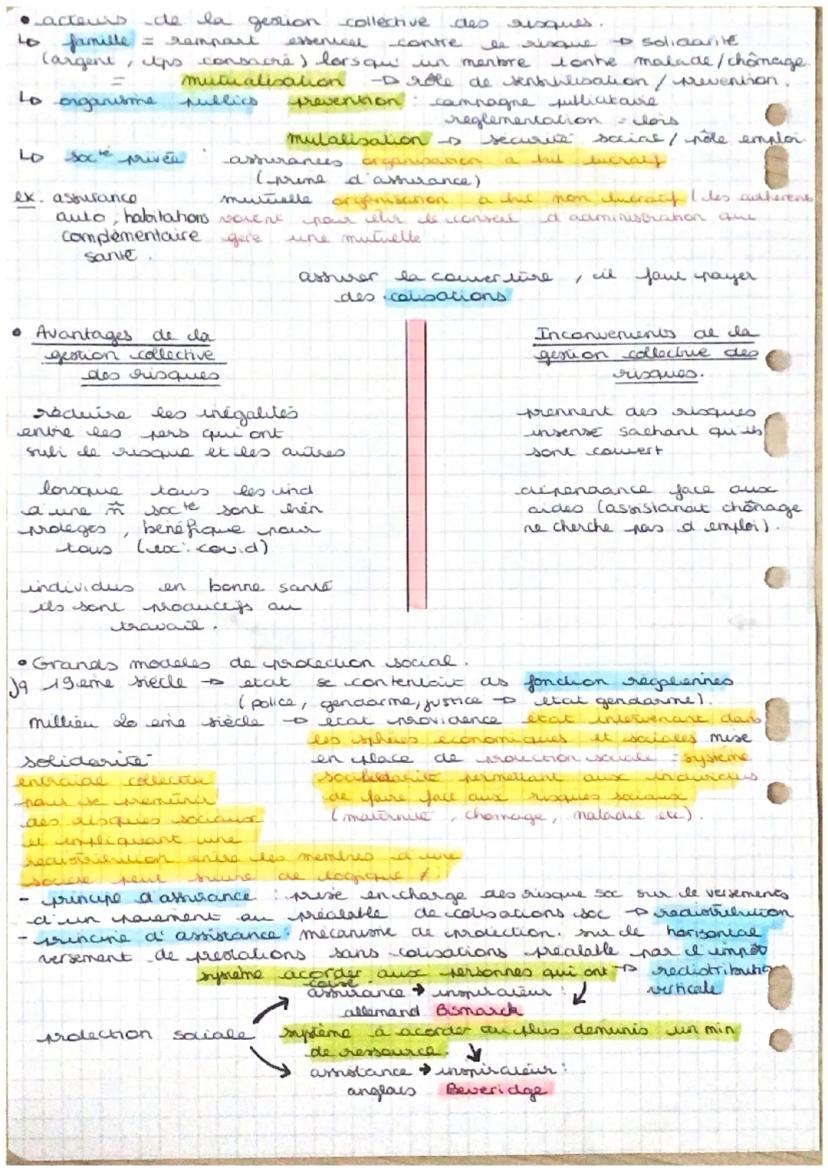 • acteurs de la gestion collective des risques.
↳ famille = rempart essentiel contre le risque → solidarité
(argent, tps consacré) lorsqu'un membre tombe malade/chômage
= mutualisation → rôle de sensibilisation / prevention.
↳ organisme publics prevention : campagne publicitaire
reglementation = lois
mutalisation → sécurité social / pôle emploi
↳ socté privée : assurances organisation à but lucratif
(prime d'assurance)
ex: assurance mutuelle organisation à but non lucratif (les adhérents
auto, habitations votent pour élir le conseil d'administration qui
complémentaire gère une mutuelle
santé.
assurer la couverture, il faut payer
des cotisations
• Avantages de la
gestion collective
des risques
réduire les inégalités
entre les pers qui ont
subi le risque et les autres
lorsque tous les ind
d'une m̂ socté sont bien
protégés, bénéfique pour
tous (ex: covid)
individus en bonne santé
ils sont productifs au
travail.
Inconvenients de la
gestion collective des
risques.
prennent des risques
insensé sachant qu'ils
sont couvert
dépendance face aux
aides (assistanat chômage
ne cherche pas d'emploi).
• Grands modeles de protection social.
Jq 19eme siècle → etat se contentait des fonction regaliennes
(police, gendarme, justice → etat gendarme).
millieu 20 eme siècle → etat providence état intervenant dans
les sphères economiques et sociales mise
en place de protection sociale = système
permettant aux individus
de faire face aux risques sociaux
(maternité, chomage, maladie etc).
solidarité
entraide collective
pour se prémunir
des risques sociaux
et impliquant une
redistribution entre les membres d'une
société peut suivre de logique ≠:
- principe d'assurance : prise en charge des risque soc sur le versements
d'un paiement au préalable de cotisations soc → redistribution
horizontal
- principe d'assistance : mécanisme de protection. sur le
versement de prestations sans cotisations préalable par l'impôt
→ redistribution
verticale
système acorder aux personnes qui ont
cotisé
assurance → inspirateur :
allemand Bismarck
protection sociale
système à acorder au plus demunis un min
de ressource.
assistance → inspirateur :
anglais Beveridge